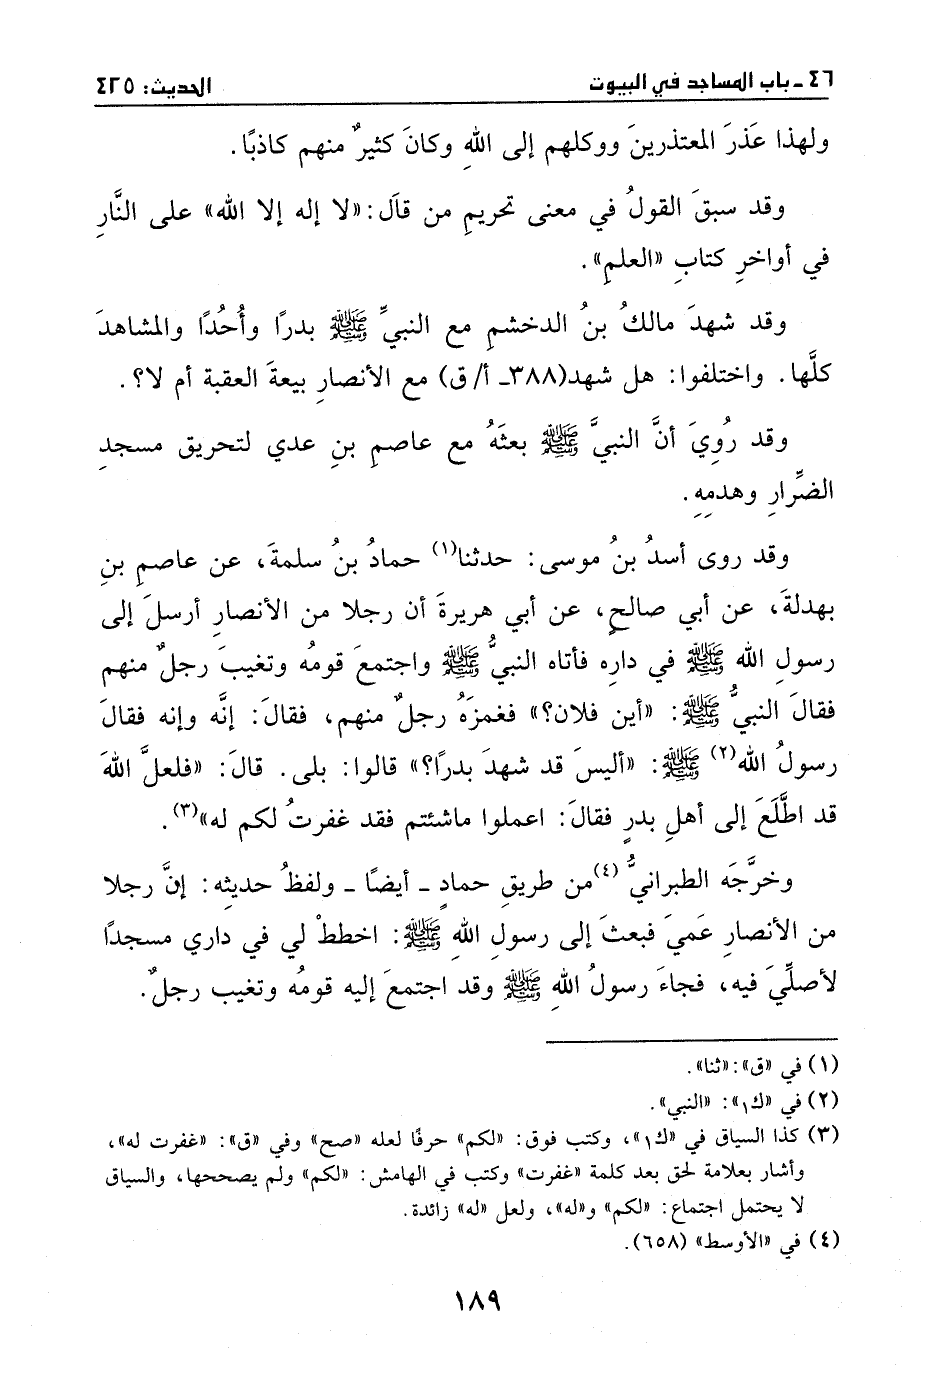 ٤٦ - باب المساجد في البيوت الحديث: ٤٢٥
ولهذا عَذرَ المعتذرينَ ووكلهم إلى اللهِ وكانَ كثيرٌ منهم كاذبًا.
وقد سبقَ القولُ في معنى تحريمِ من قالَ: «لا إله إلا الله» على النَّارِ
في أواخرِ كتابِ «العلمِ».
وقد شهدَ مالكُ بنُ الدخشمِ مع النبيِّ ﷺ بدرًا وأُحُدًا والمشاهدَ
كلَّها. واختلفوا: هل شهد(٣٨٨ـ أ/ ق) مع الأنصارِ بيعةَ العقبة أم لا؟.
وقد رُوِيَ أنَّ النبيَّ ﷺ بعثَهُ مع عاصمِ بنِ عدي لتحريق مسجدِ
الضِّرارِ وهدمِهِ.
وقد روى أسدُ بنُ موسى: حدثنا(١) حمادُ بنُ سلمةَ، عن عاصمِ بنِ
بهدلةَ، عن أبي صالحٍ، عن أبي هريرةَ أن رجلا من الأنصارِ أرسلَ إلى
رسولِ الله ﷺ في دارِه فأتاه النبيُّ ﷺ واجتمعَ قومُه وتغيبَ رجلٌ منهم
فقالَ النبيُّ ﷺ: «أين فلان؟» فغمزَهُ رجلٌ منهم، فقالَ: إنَّه وإنه فقالَ
رسولُ الله(٢) ﷺ: «أليسَ قد شهدَ بدرًا؟» قالوا: بلى. قالَ: «فلعلَّ اللهَ
قد اطَّلَعَ إلى أهلِ بدرٍ فقالَ: اعملوا ماشئتم فقد غفرتُ لكم له»(٣).
وخرَّجَه الطبرانيُّ(٤) من طريقِ حمادٍ ـ أيضًا ـ ولفظُ حديثِه: إنَّ رجلا
من الأنصارِ عَميَ فبعثَ إلى رسولِ اللهِ ﷺ: اخططْ لي في داري مسجدًا
لأصلِّيَ فيه، فجاءَ رسولُ اللهِ ﷺ وقد اجتمعَ إليه قومُه وتغيب رجلٌ.
(١) في «ق»: «ثنا».
(٢) في «ك١»: «النبي».
(٣) كذا السياق في «ك١»، وكتب فوق: «لكم» حرفًا لعله «صح» وفي «ق»: «غفرت له»،
وأشار بعلامة لحق بعد كلمة «غفرت» وكتب في الهامش: «لكم» ولم يصححها، والسياق
لا يحتمل اجتماع: «لكم» و«له»، ولعل «له» زائدة.
(٤) في «الأوسط» (٦٥٨).
١٨٩